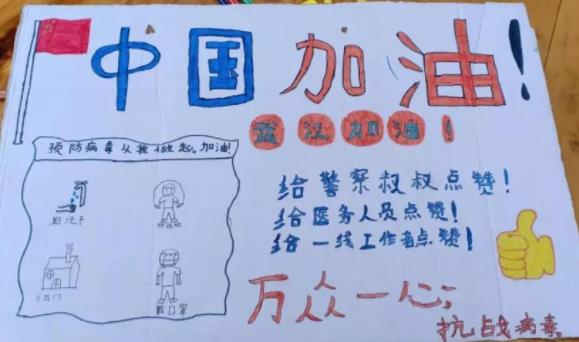 中国加油！
武汉加油！
预防病毒从我做起。加油！
勤洗手
戴口罩
给警察叔叔点赞！
给医务人员点赞！
给一线工作者点赞！
万众一心；
抗战病毒